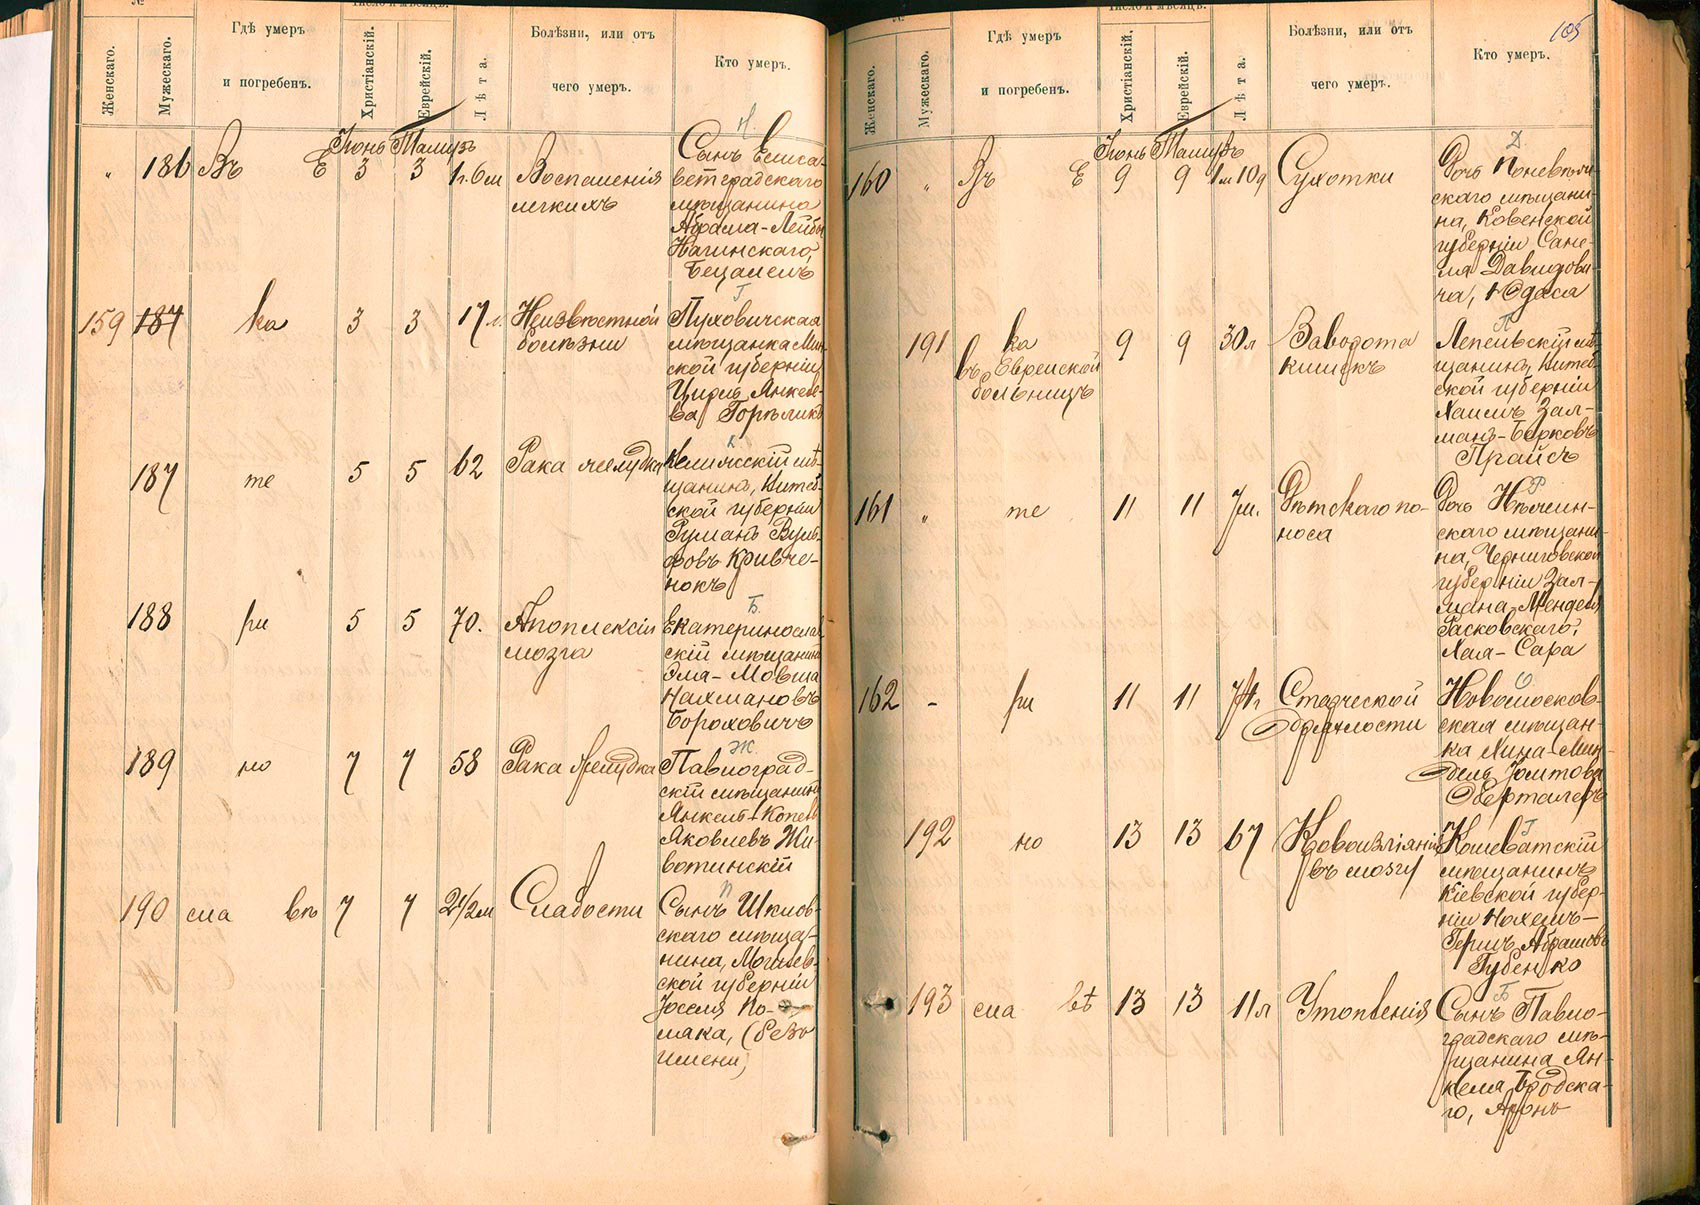 №
Число и мѣсяцъ.
Женскаго.
Мужескаго.
Гдѣ умеръ
и погребенъ.
Христіанскій.
Еврейскій.
Лѣта.
Болѣзни, или отъ
чего умеръ.
Кто умеръ.
Іюнь Тамузъ
" 186 Въ Е 3 3 1г.6м Воспаленія
легкихъ
Н.
Сынъ Елиса-
ветградскаго
мѣщанина
Абрама-Лейбы
Нагинскаго,
Бецалелъ
159 187 ка 3 3 17 л. Неизвѣстной
болѣзни
Г
Пуховичская
мѣщанка Мин-
ской губерніи
Циръ Янкеле-
ва Горѣликъ
187 те 5 5 62 Рака желудка
К
мѣ-
щанинъ, Витеб-
ской губерніи
Вуль-
фовъ Кривче-
нокъ
188 ри 5 5 70. Апоплексіи
мозга
Б.
Екатеринослав
скій мѣщанинъ
Эля-Мовша
Нахмановъ
Бороховичъ
189 но 7 7 58 Рака желудка
Ж.
Павлоград-
скій мѣщанинъ
Янкель-Копель
Яковлевъ Жи-
вотинскій
190 сла вѣ 7 7 2½м Слабости
П
Сынъ Шклов-
скаго мѣща-
нина, Могилев-
ской губерніи
Іоселя По-
ляка, (безъ
имени)
№
Число и мѣсяцъ.
105
Женскаго.
Мужескаго.
Гдѣ умеръ
и погребенъ.
Христіанскій.
Еврейскій.
Лѣта.
Болѣзни, или отъ
чего умеръ.
Кто умеръ.
Іюнь Тамузъ
160 " Въ Е 9 9 1м10д Сухотки
Д
Дочь Поневѣж-
скаго мѣщани-
на, Ковенской
губерніи Сане-
ля Давидови-
ча, Юдаса
191 ка 9 9 30л Заворота
кишекъ
въ Еврейской
больницѣ
П
Лепельскій мѣ-
щанинъ, Витеб-
ской губерніи
Хаимъ Зал-
манъ-Берковъ
Прайсъ
161 " те 11 11 7м. Дѣтскаго по-
носа
Р
Дочь Нѣжин-
скаго мѣщани-
на, Черниговской
губерніи Зал-
мана-Менделя
Расковскаго,
Хая-Сара
162 - ри 11 11 74г Старческой
дряхлости
О
Новомосков-
ская мѣщан-
ка Хина-Мин-
дель Іомтова
Оберталеръ
192 но 13 13 67 Кровоизліянія
въ мозгу
Г
Кошеватскій
мѣщанинъ
Кіевской губер-
ніи Нохемъ-
Гершъ Абрамовъ
Губенко
193 сла вѣ 13 13 11л Утопленія
Б
Сынъ Павло-
градскаго мѣ-
щанина Ян-
келя Бродска-
го, Аронъ